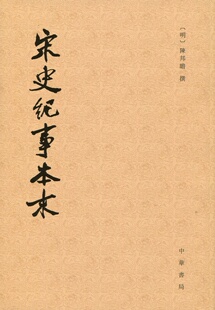 宋史紀事本末
〔明〕陳邦瞻 撰
中華書局